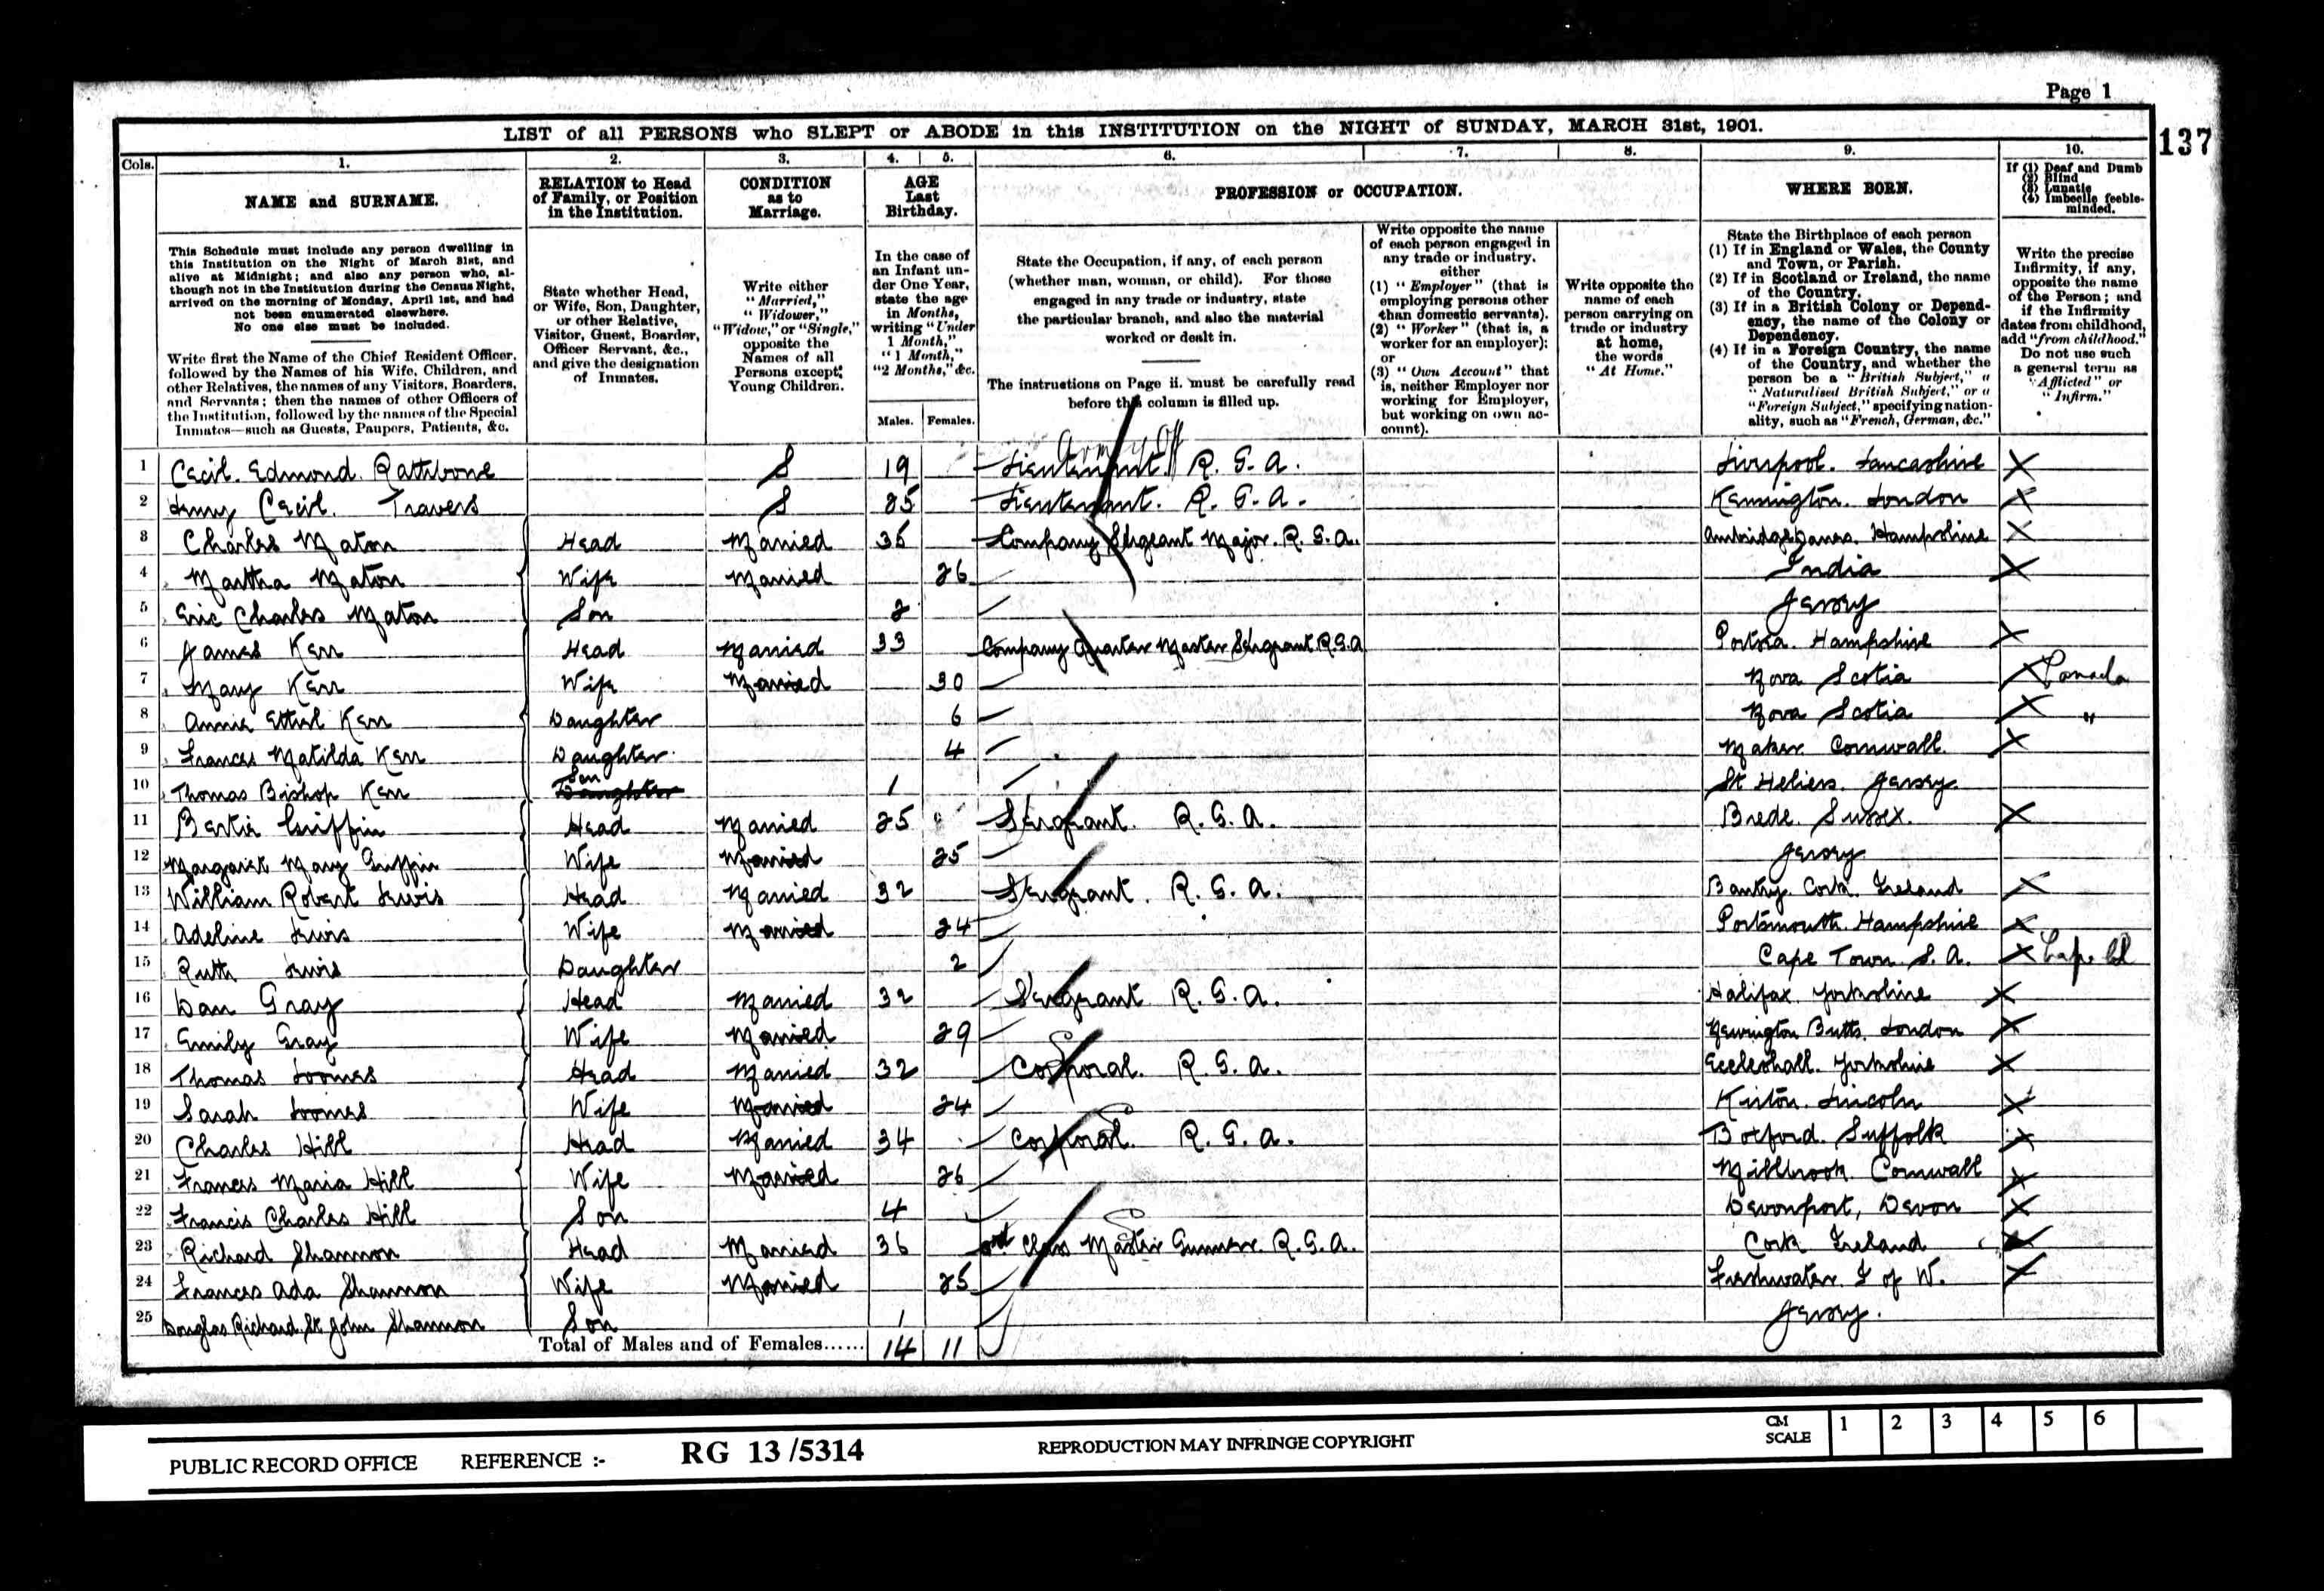 Page 1
137
LIST of all PERSONS who SLEPT or ABODE in this INSTITUTION on the NIGHT of SUNDAY, MARCH 31st, 1901.
Cols. 1. 2. 3. 4. 5. 6. 7. 8. 9. 10.
NAME and SURNAME.
This Schedule must include any person dwelling in
this Institution on the Night of March 31st, and
alive at Midnight; and also any person who, al-
though not in the Institution during the Census Night,
arrived on the morning of Monday, April 1st, and had
not been enumerated elsewhere.
No one else must be included.
Write first the Name of the Chief Resident Officer,
followed by the Names of his Wife, Children, and
other Relatives, the names of any Visitors, Boarders,
and Servants; then the names of other Officers of
the Institution, followed by the names of the Special
Inmates—such as Guests, Paupers, Patients, &c.
RELATION to Head
of Family, or Position
in the Institution.
State whether Head,
or Wife, Son, Daughter,
or other Relative,
Visitor, Guest, Boarder,
Officer Servant, &c.,
and give the designation
of Inmates.
CONDITION
as to
Marriage.
Write either
"Married,"
"Widower,"
"Widow," or "Single,"
opposite the
Names of all
Persons except
Young Children.
AGE
Last
Birthday.
In the case of
an Infant un-
der One Year,
state the age
in Months,
writing "Under
1 Month,"
"1 Month,"
"2 Months," &c.
Males. Females.
PROFESSION or OCCUPATION.
State the Occupation, if any, of each person
(whether man, woman, or child). For those
engaged in any trade or industry, state
the particular branch, and also the material
worked or dealt in.
The instructions on Page ii. must be carefully read
before this column is filled up.
Write opposite the name
of each person engaged in
any trade or industry,
either
(1) "Employer" (that is
employing persons other
than domestic servants).
(2) "Worker" (that is, a
worker for an employer);
or
(3) "Own Account" that
is, neither Employer nor
working for Employer,
but working on own ac-
count).
Write opposite the
name of each
person carrying on
trade or industry
at home,
the words
"At Home."
WHERE BORN.
State the Birthplace of each person
(1) If in England or Wales, the County
and Town, or Parish.
(2) If in Scotland or Ireland, the name
of the Country.
(3) If in a British Colony or Depend-
ency, the name of the Colony or
Dependency.
(4) If in a Foreign Country, the name
of the Country, and whether the
person be a "British Subject," a
"Naturalised British Subject," or a
"Foreign Subject," specifying nation-
ality, such as "French, German, &c."
If (1) Deaf and Dumb
(2) Blind
(3) Lunatic
(4) Imbecile feeble-
minded.
Write the precise
Infirmity, if any,
opposite the name
of the Person; and
if the Infirmity
dates from childhood,
add "from childhood."
Do not use such
a general term as
"Afflicted" or
"Infirm."
Army Off
1 Cecil. Edmond. Rathbone S 19 Lieutenant. R. G. A. Liverpool. Lancashire X
2 Henry Cecil. Travers S 25 Lieutenant. R. G. A. Kensington. London X
3 Charles Maton Head Married 35 Company Sergeant Major. R. G. A. Hampshire X
4 Martha Maton Wife Married 26 India X
5 Eric Charles Maton Son 2 Jersey
6 James Kerr Head Married 33 Company Quarter Master Sergeant R.G.A Portsea. Hampshire X
7 Mary Kerr Wife Married 30 Nova Scotia X Canada
8 Annie Ethel Kerr Daughter 6 Nova Scotia X "
9 Frances Matilda Kerr Daughter 4 Maker Cornwall. X
10 Thomas Bishop Kerr Son Daughter 1 St Heliers. Jersey.
11 Bertie Griffin Head Married 25 Sergeant. R. G. A. Brede. Sussex. X
12 Margaret Mary Griffin Wife Married 25 Jersey
13 William Robert Lewis Head Married 32 Sergeant. R. G. A. Bantry. Cork. Ireland X
14 Adeline Lewis Wife Married 24 Portsmouth. Hampshire X
15 Ruth Lewis Daughter 2 Cape Town. S. A. X Cape Col
16 Dan Gray Head Married 32 Sergeant R. G. A. Halifax. Yorkshire X
17 Emily Gray Wife Married 29 Newington Butts. London X
18 Thomas Loomes Head Married 32 Corporal. R. G. A. Eccleshall. Yorkshire X
19 Sarah Loomes Wife Married 24 Kirton. Lincoln X
20 Charles Hill Head Married 34 Corporal. R. G. A. Boxford. Suffolk X
21 Frances Maria Hill Wife Married 26 Millbrook Cornwall X
22 Francis Charles Hill Son 4 Devonport, Devon X
23 Richard Shannon Head Married 36 Class Master Gunner. R. G. A. Cork Ireland X
24 Frances Ada Shannon Wife Married 25 Freshwater. I of W. X
25 Douglas Richard. St John Shannon Son 1 Jersey.
Total of Males and of Females...... 14 11
PUBLIC RECORD OFFICE REFERENCE :- RG 13/5314 REPRODUCTION MAY INFRINGE COPYRIGHT CM SCALE 1 2 3 4 5 6